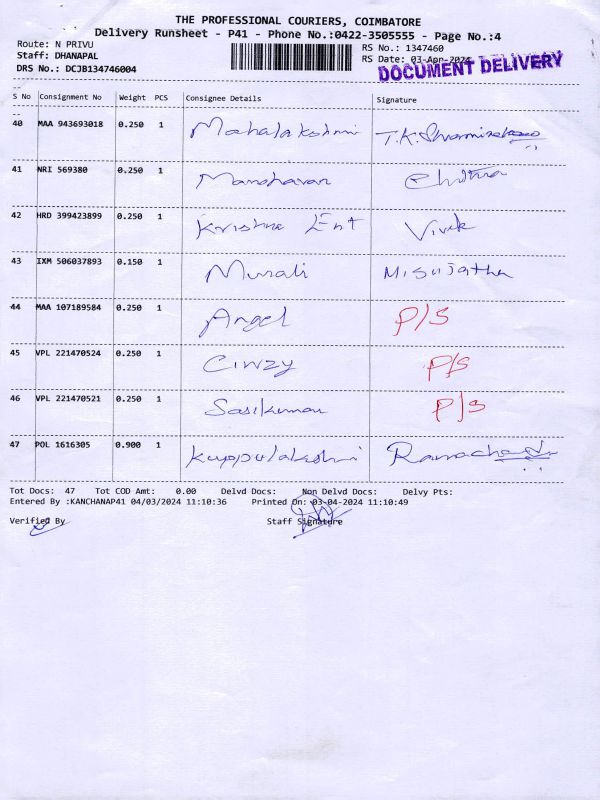 THE PROFESSIONAL COURIERS, COIMBATORE
Delivery Runsheet - P41 - Phone No.:0422-3505555 - Page No.:4
Route: N PRIVU RS No.: 1347460
Staff: DHANAPAL RS Date: 03-Apr-2024
DRS No.: DCJB134746004 DOCUMENT DELIVERY
S No Consignment No Weight PCS Consignee Details Signature
40 MAA 943693018 0.250 1 Mahalakshmi T.K.
41 NRI 569380 0.250 1 Manoharan Chitra
42 HRD 399423899 0.250 1 Krishna Ent Vivek
43 IXM 506037893 0.150 1 Murali M Sujatha
44 MAA 107189584 0.250 1 Angel P/S
45 VPL 221470524 0.250 1 Cinzy P/S
46 VPL 221470521 0.250 1 Sasikumar P/S
47 POL 1616305 0.900 1 Kuppulakshmi
Tot Docs: 47 Tot COD Amt: 0.00 Delvd Docs: Non Delvd Docs: Delvy Pts:
Entered By :KANCHANAP41 04/03/2024 11:10:36 Printed On: 03-04-2024 11:10:49
Verified By Staff Signature